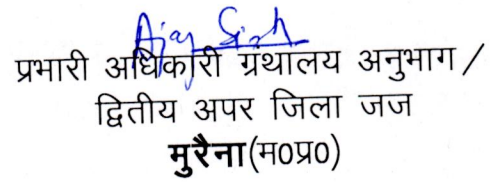 Ajay Singh
प्रभारी अधिकारी ग्रंथालय अनुभाग /
द्वितीय अपर जिला जज
मुरैना(म0प्र0)